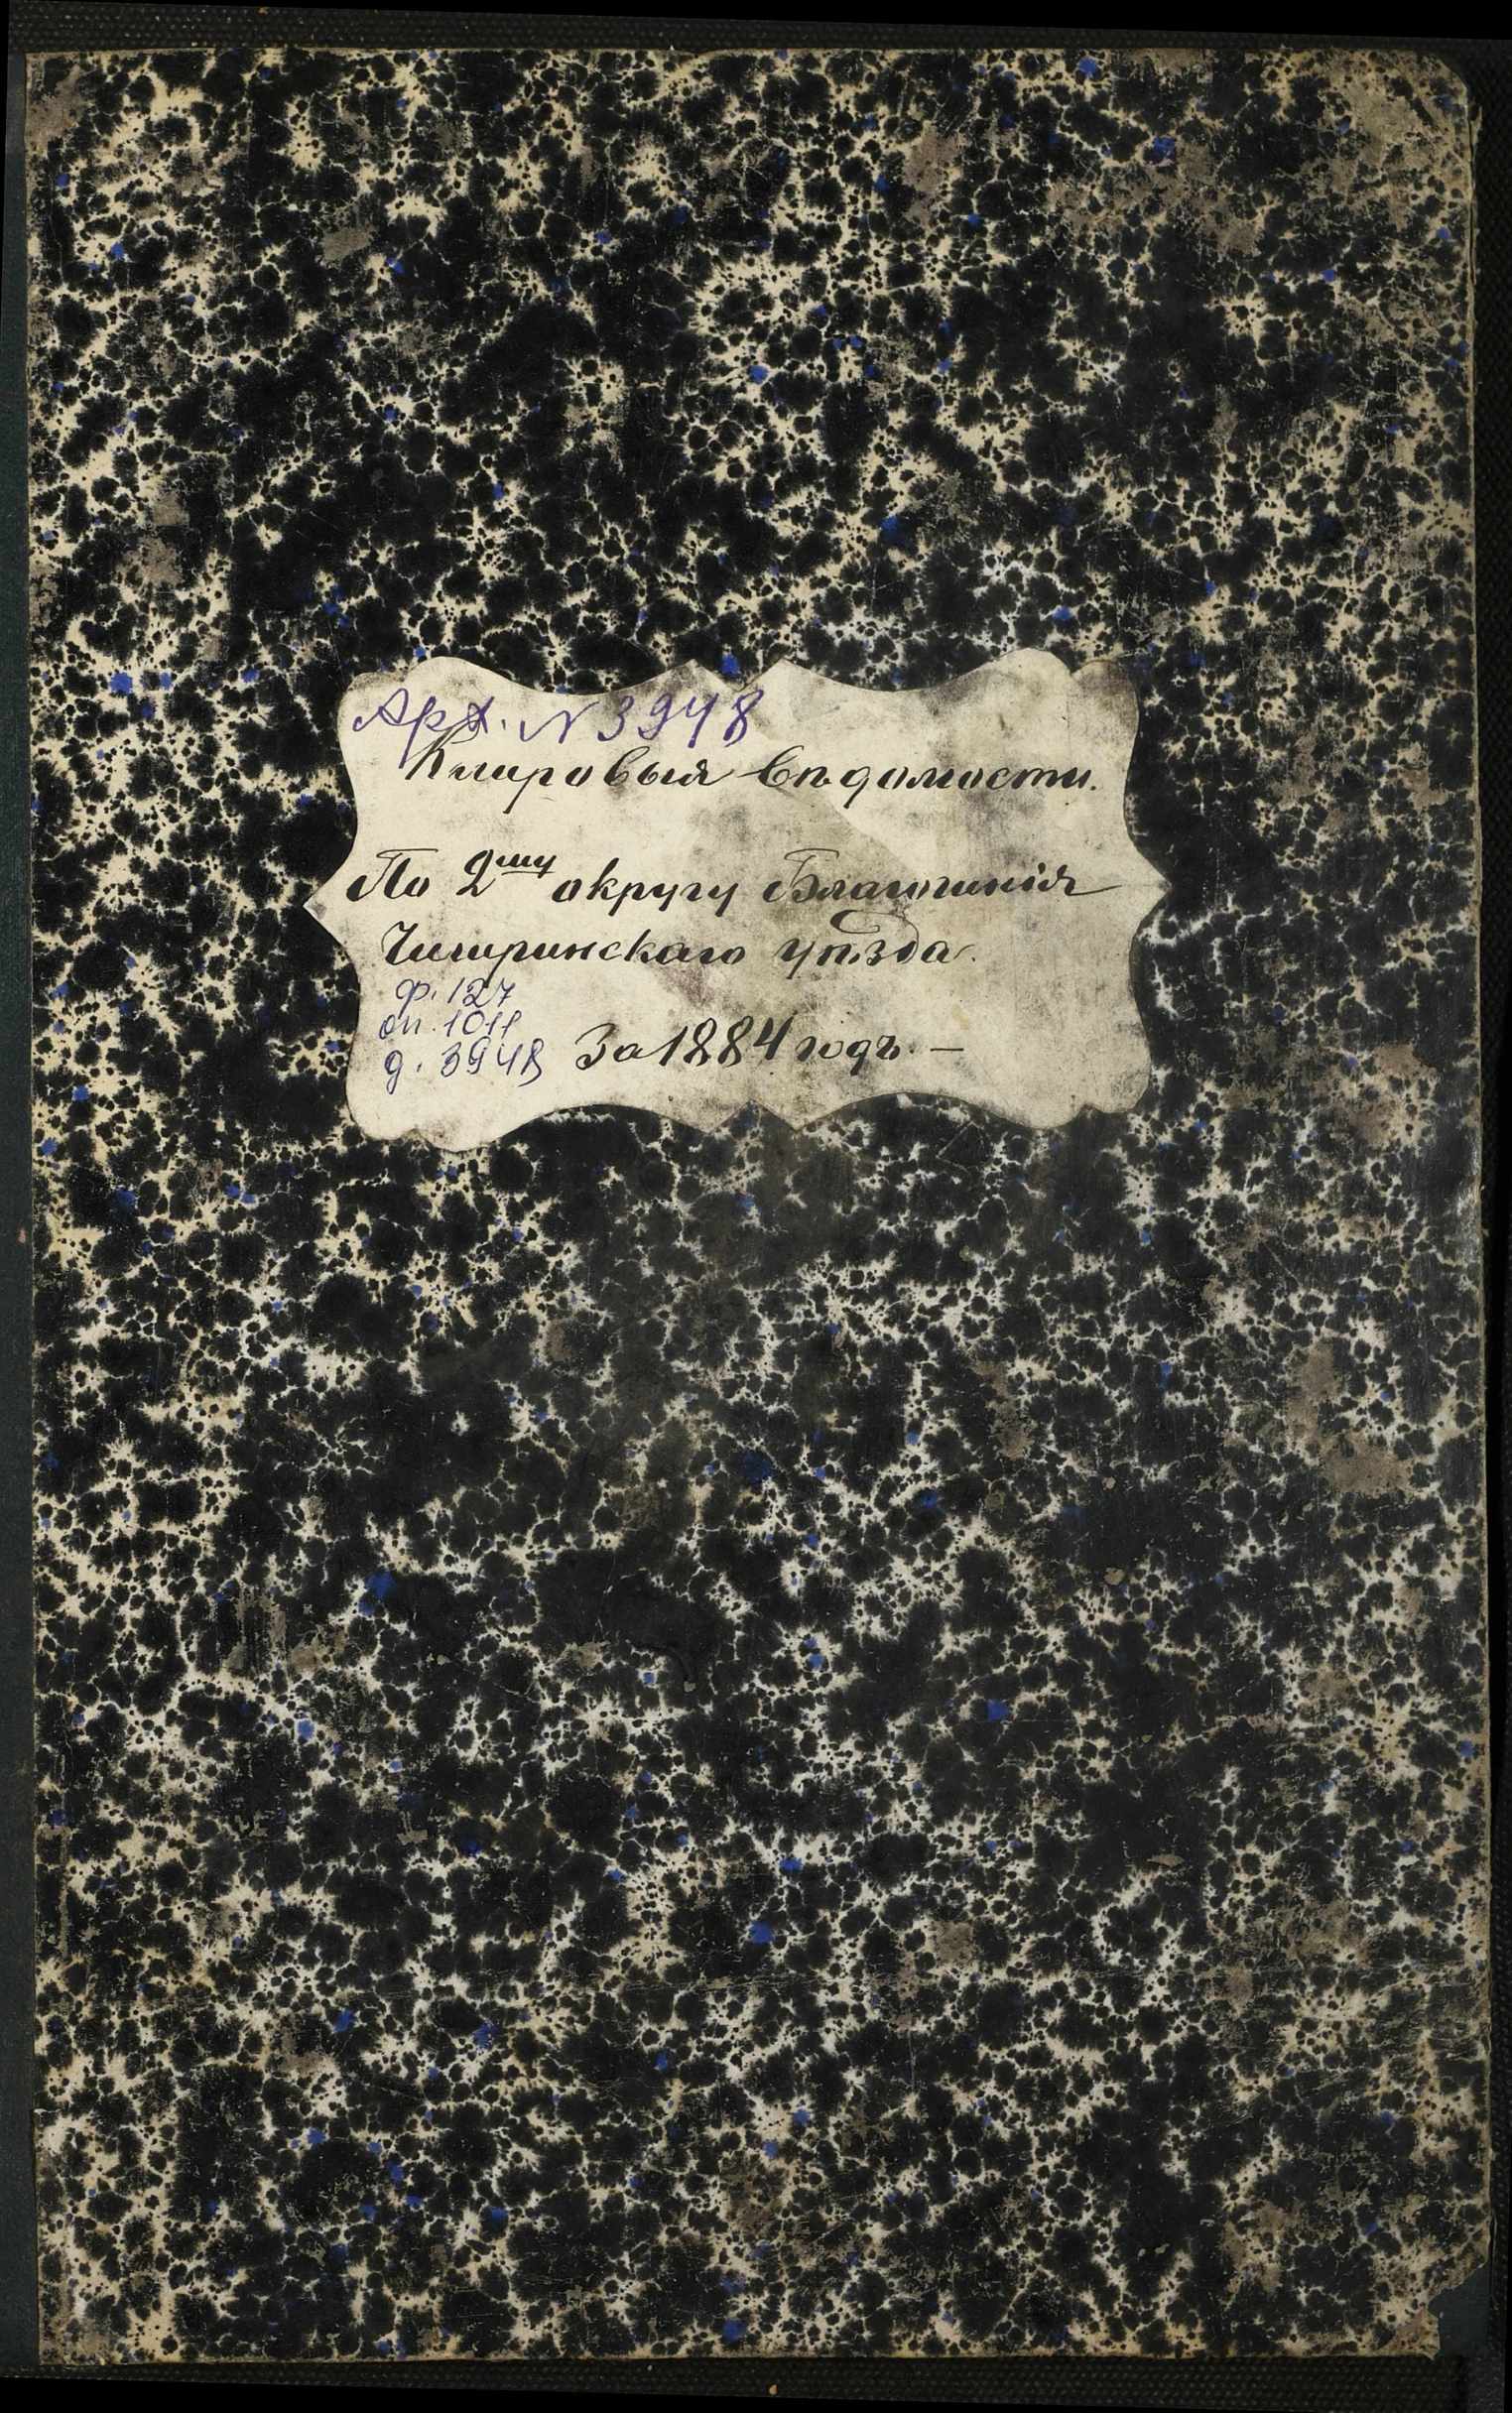 Арх. N 3948
Клировыя вѣдомости.
По 2му округу Благочинія
Чигиринскаго уѣзда.
ф. 127
оп. 1011
д. 3948
За 1884 годъ. —